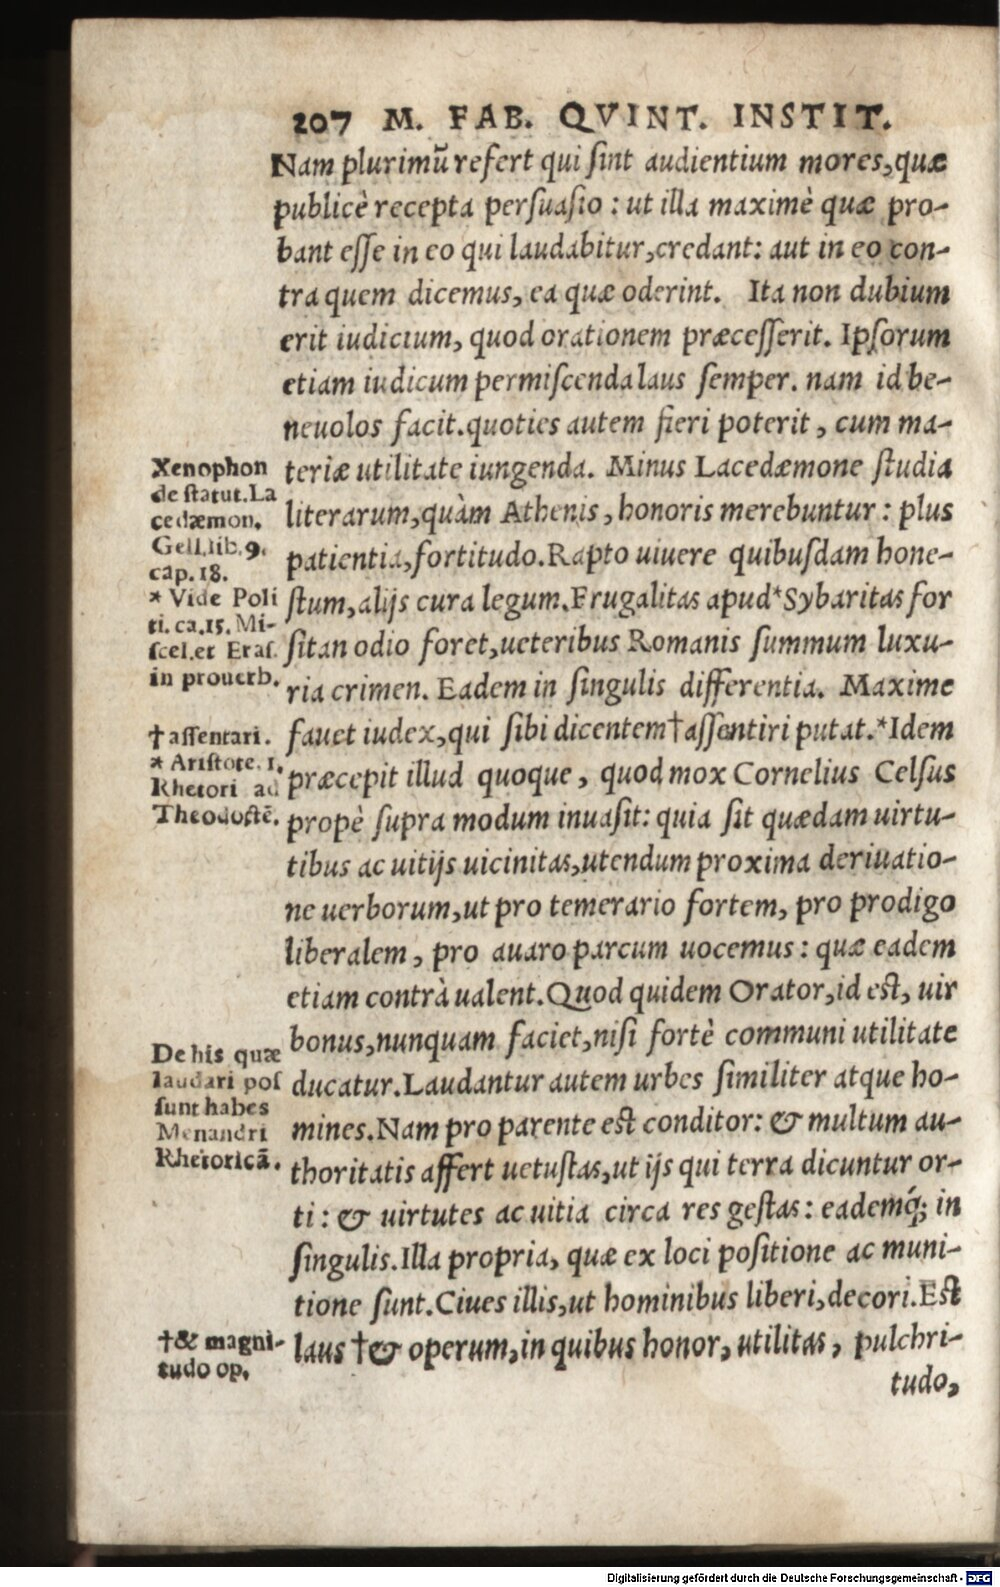 207 M. FAB. QVINT. INSTIT.
Nam plurimũ refert qui ſint audientium mores, quæ
publicè recepta perſuaſio : ut illa maximè quæ pro-
bant eſſe in eo qui laudabitur, credant: aut in eo con-
tra quem dicemus, ea quæ oderint. Ita non dubium
erit iudicium, quod orationem præceſſerit. Ipſorum
etiam iudicum permiſcenda laus ſemper. nam id be-
neuolos facit. quoties autem fieri poterit, cum ma-
teriæ utilitate iungenda. Minus Lacedæmone ſtudia
literarum, quàm Athenis, honoris merebuntur : plus
patientia, fortitudo. Rapto uiuere quibuſdam hone-
ſtum, alijs cura legum. Frugalitas apud *Sybaritas for
ſitan odio foret, ueteribus Romanis ſummum luxu-
ria crimen. Eadem in ſingulis differentia. Maxime
fauet iudex, qui ſibi dicentem †aſſentiri putat. *Idem
præcepit illud quoque, quod mox Cornelius Celſus
propè ſupra modum inuaſit: quia ſit quædam uirtu-
tibus ac uitijs uicinitas, utendum proxima deriuatio-
ne uerborum, ut pro temerario fortem, pro prodigo
liberalem, pro auaro parcum uocemus : quæ eadem
etiam contrà ualent. Quod quidem Orator, id eſt, uir
bonus, nunquam faciet, niſi fortè communi utilitate
ducatur. Laudantur autem urbes ſimiliter atque ho-
mines. Nam pro parente eſt conditor: & multum au-
thoritatis affert uetuſtas, ut ijs qui terra dicuntur or-
ti : & uirtutes ac uitia circa res geſtas : eademq́; in
ſingulis. Illa propria, quæ ex loci poſitione ac muni-
tione ſunt. Ciues illis, ut hominibus liberi, decori. Eſt
laus †& operum, in quibus honor, utilitas, pulchri-
tudo,
Xenophon
de ſtatut. La
cedæmon.
Gell. lib. 9.
cap. 18.
* Vide Poli
ti. ca. 15. Mi-
ſcel. et Eraſ.
in prouerb.
† aſſentari.
* Ariſtote. 1.
Rhetori ad
Theodoctẽ.
De his quæ
laudari poſ
ſunt habes
Menandri
Rhetoricã.
†& magni-
tudo op.
Digitalisierung gefördert durch die Deutsche Forschungsgemeinschaft - DFG